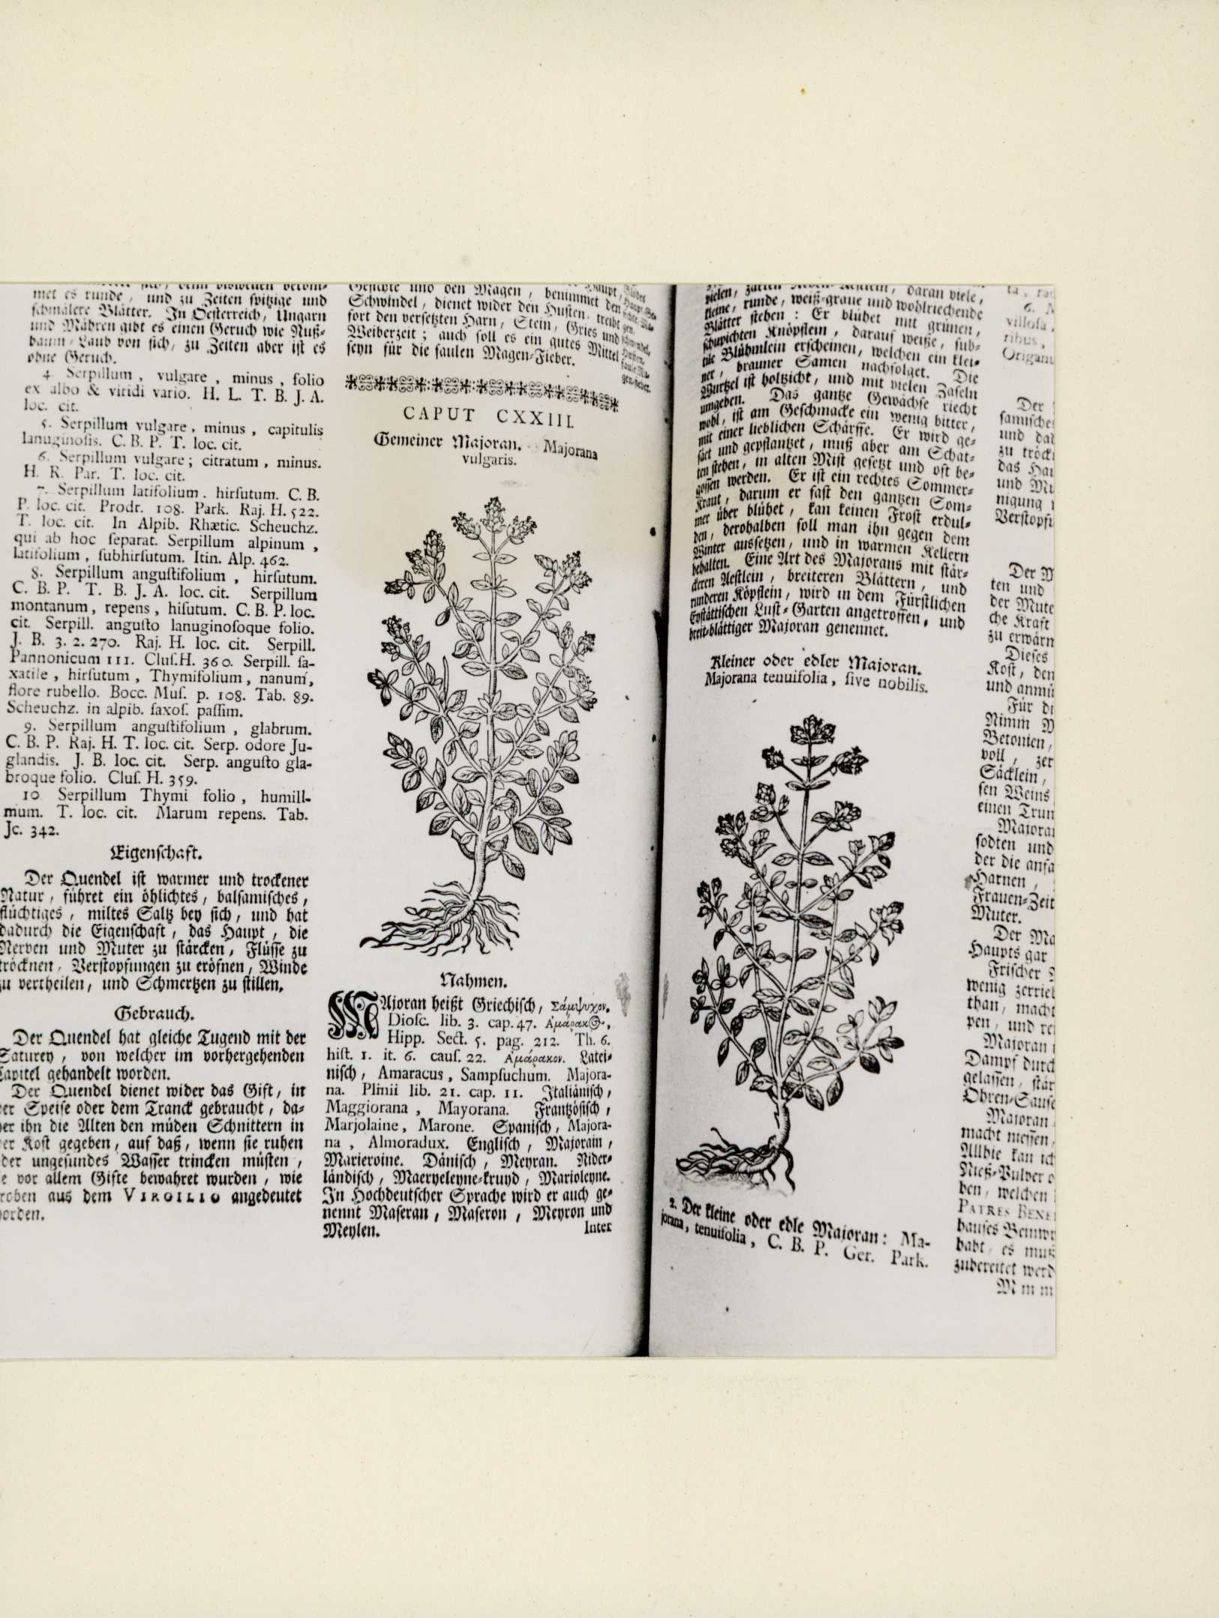 met es runde, und zu Zeiten spitzige und
schmälere Blätter. In Oesterreich, Ungarn
und Mähren gibt es einen Geruch wie Nuß-
baum-Laub von sich, zu Zeiten aber ist es
ohne Geruch.
4. Serpillum, vulgare, minus, folio
ex albo & viridi vario. H. L. T. B. J. A.
loc. cit.
5. Serpillum vulgare, minus, capitulis
lanuginosis. C. B. P. T. loc. cit.
6. Serpillum vulgare; citratum, minus.
H. R. Par. T. loc. cit.
7. Serpillum latifolium. hirsutum. C. B.
P. loc. cit. Prodr. 108. Park. Raj. H. 522.
T. loc. cit. In Alpib. Rhætic. Scheuchz.
qui ab hoc separat. Serpillum alpinum,
latifolium, subhirsutum. Itin. Alp. 462.
8. Serpillum angustifolium, hirsutum.
C. B. P. T. B. J. A. loc. cit. Serpillum
montanum, repens, hisutum. C. B. P. loc.
cit. Serpill. angusto lanuginosoque folio.
J. B. 3. 2. 270. Raj. H. loc. cit. Serpill.
Pannonicum III. Clus. H. 360. Serpill. sa-
xatile, hirsutum, Thymifolium, nanum,
flore rubello. Bocc. Mus. p. 108. Tab. 89.
Scheuchz. in alpib. saxos. passim.
9. Serpillum angustifolium, glabrum.
C. B. P. Raj. H. T. loc. cit. Serp. odore Ju-
glandis. J. B. loc. cit. Serp. angusto gla-
broque folio. Clus. H. 359.
10 Serpillum Thymi folio, humill-
mum. T. loc. cit. Marum repens. Tab.
Jc. 342.
Eigenschaft.
Der Quendel ist warmer und trockener
Natur, führet ein öhlichtes, balsamisches,
flüchtiges, miltes Saltz bey sich, und hat
dadurch die Eigenschaft, das Haupt, die
Nerven und Muter zu stärcken, Flüsse zu
tröcknen, Verstopfungen zu eröfnen, Winde
zu vertheilen, und Schmertzen zu stillen.
Gebrauch.
Der Quendel hat gleiche Tugend mit der
Saturey, von welcher im vorhergehenden
Capitel gehandelt worden.
Der Quendel dienet wider das Gift, in
der Speise oder dem Tranck gebraucht, da-
her ihn die Alten den müden Schnittern in
der Kost gegeben, auf daß, wenn sie ruhen
oder ungesundes Wasser trincken müsten,
e vor allem Gifte bewahret wurden, wie
roben aus dem VIRGILIO angedeutet
orden.
und den Magen, benimmet den
Schwindel, dienet wider den Husten, treibt
fort den versetzten Harn, Stein, Gries und
Weiberzeit; auch soll es ein gutes Mittel
seyn für die faulen Magen-Fieber.
CAPUT CXXIII.
Gemeiner Majoran. Majorana
vulgaris.
Nahmen.
MAjoran heißt Griechisch, Σάμψυχον,
Diosc. lib. 3. cap. 47. Ἀμάρακος,
Hipp. Sect. 5. pag. 212. Th. 6.
hist. 1. it. 6. caus. 22. Ἀμάρακον. Latei-
nisch, Amaracus, Sampsuchum. Majora-
na. Plinii lib. 21. cap. 11. Italiänisch,
Maggiorana, Mayorana. Frantzösisch,
Marjolaine, Marone. Spanisch, Majora-
na, Almoradux. Englisch, Majorain,
Marieroine. Dänisch, Meyran. Nider-
ländisch, Maerveleyne-kruyd, Marioleyne.
In Hochdeutscher Sprache wird er auch ge-
nennt Maseran, Maseron, Meyron und
Meylen.
Inter
daran viele,
kleine, runde, weiß-graue und wohlriechende
Blätter stehen: Er blühet mit grünen,
schupichten Knöpflein, darauf weiße, sub-
tile Blühmlein erscheinen, welchen ein klei-
ner, brauner Samen nachfolget. Die
Wurtzel ist holtzicht, und mit vielen Zaseln
umgeben. Das gantze Gewächse riecht
wohl, ist am Geschmacke ein wenig bitter,
mit einer lieblichen Schärffe. Er wird ge-
säet und gepflantzet, muß aber am Schat-
ten stehen, in alten Mist gesetzt und oft be-
gossen werden. Er ist ein rechtes Sommer-
Kraut, darum er fast den gantzen Som-
mer über blühet, kan keinen Frost erdul-
den, derohalben soll man ihn gegen dem
Winter aussetzen, und in warmen Kellern
behalten. Eine Art des Majorans mit stär-
ckeren Aestlein, breiteren Blättern, und
runderen Köpflein, wird in dem Fürstlichen
Eystättischen Lust-Garten angetroffen, und
breit-blättiger Majoran genennet.
Kleiner oder edler Majoran.
Majorana tenuifolia, sive nobilis.
2. Der kleine oder edle Majoran: Ma-
jorana, tenuifolia, C. B. P. Ger. Park.
villosa
ribus,
Origanu
Der
samische
und da
zu tröck
das Hau
und Mu
nigung
Verstopfu
Der M
ten und
der Mute
che Kraft
zu erwärn
Dieses
Kost, den
und anmü
Für di
Nimm M
Betonien,
voll, zer
Säcklein,
sen Weins
einen Trun
Majora
sodten und
der die anfa
Harnen,
Frauen-Zeit
Muter.
Der Ma
Haupts gar
Frischer
wenig zerrie
than, macht
pen, und re
Majoran
Dampf durch
gelassen, stär
Ohren-Sause
Majoran
macht niessen,
Allhie kan ich
Nieß-Pulver
ben, welchen
PATRES BENE
hauses
habt, es muß
zubereitet werd
M m m